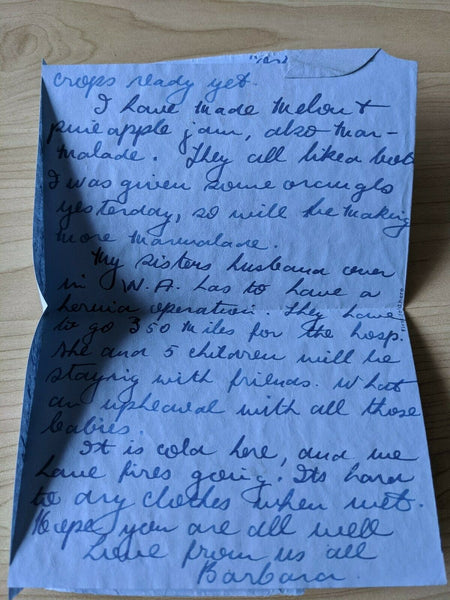 crops ready yet.
I have made Melon &
pineapple jam, also Mar-
malade. They all liked both
I was given some oranges
yesterday, so will be making
more marmalade.
My sisters husband over
in W.A. has to have a
hernia operation. They have
to go 350 miles for the hosp.
She and 5 children will be
staying with friends. What
an upheaval with all those
babies.
It is cold here, and we
have fires going. Its hard
to dry clothes when wet.
Hope you are all well
Love from us all
Barbara.